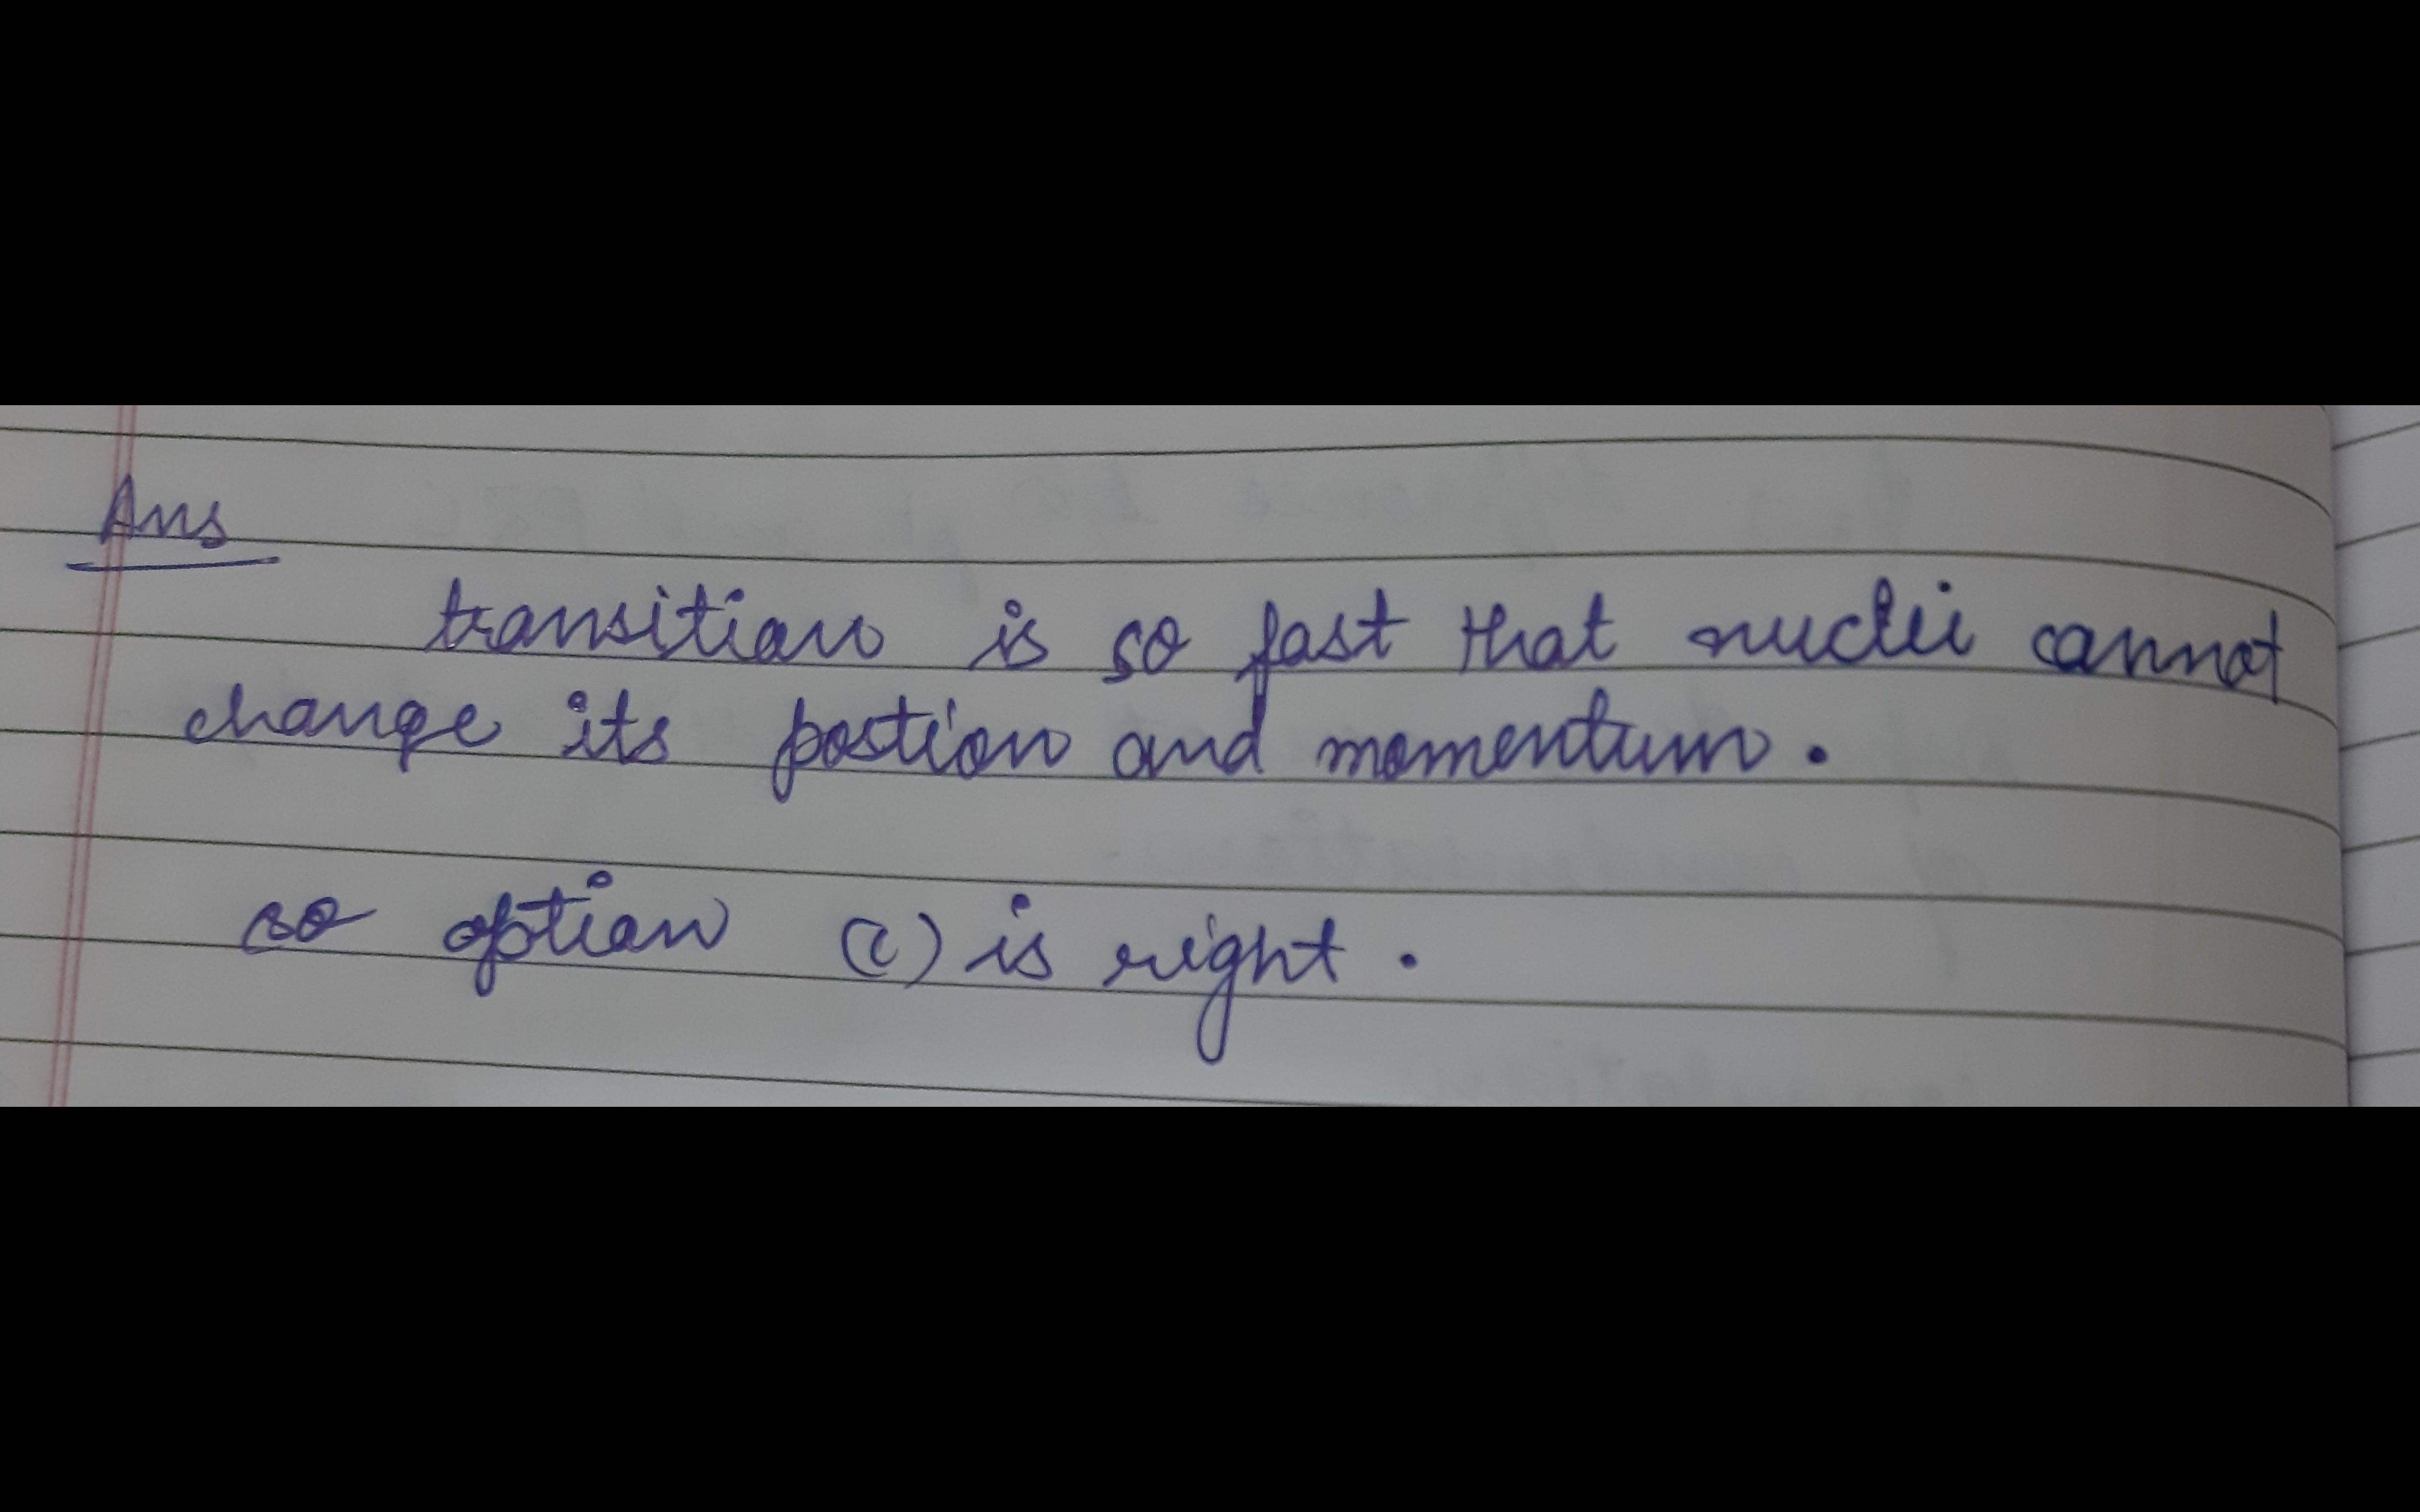 Ans
transition is so fast that nuclei cannot
change its postion and momentum.
so option (c) is right.